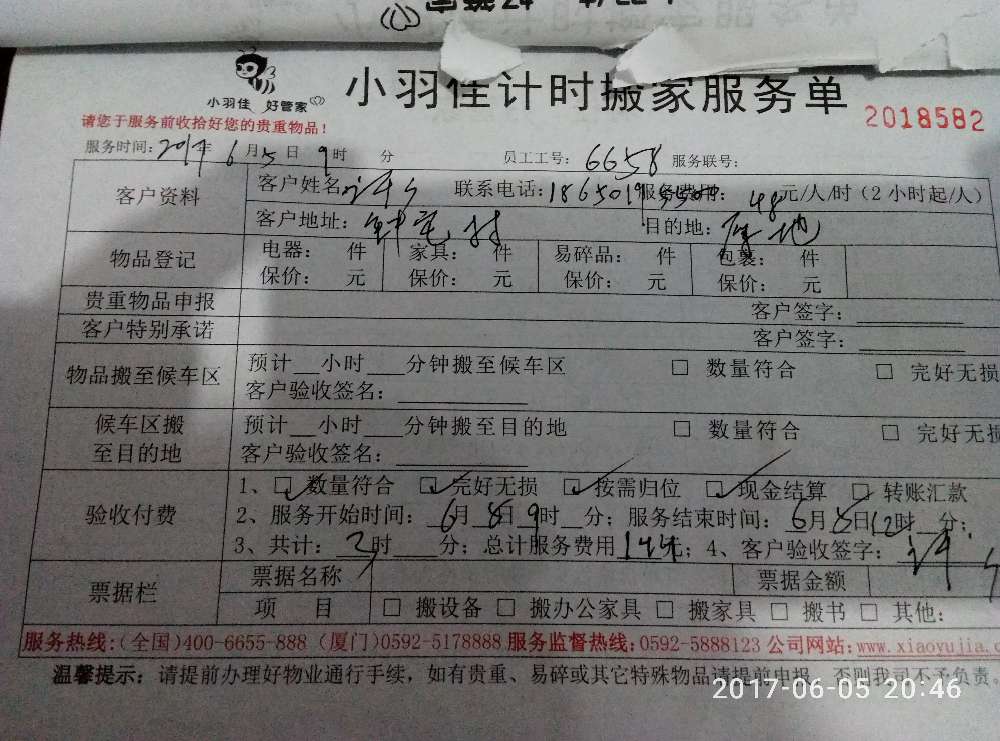 小羽佳 好管家
小羽佳计时搬家服务单
2018582
请您于服务前收拾好您的贵重物品！
服务时间：2017年6月5日9时 分 员工工号：6658 服务联号：
客户资料
客户姓名： 联系电话： 服务费用：48元/人/时（2小时起/人）
客户地址：钟宅村 目的地：原地
物品登记
电器： 件 家具： 件 易碎品： 件 包装： 件
保价： 元 保价： 元 保价： 元 保价： 元
贵重物品申报 客户签字：
客户特别承诺 客户签字：
物品搬至候车区
预计__小时___分钟搬至候车区 □ 数量符合 □ 完好无损
客户验收签名：
候车区搬至目的地
预计__小时___分钟搬至目的地 □ 数量符合 □ 完好无损
客户验收签名：
验收付费
1、☑ 数量符合 ☑ 完好无损 ☑ 按需归位 ☑ 现金结算 □ 转账汇款
2、服务开始时间：6月 日9时__分；服务结束时间：6月 日12时__分；
3、共计：3时___分；总计服务费用144元；4、客户验收签字：
票据栏
票据名称 票据金额
项 目 □ 搬设备 □ 搬办公家具 □ 搬家具 □ 搬书 □ 其他：
服务热线：（全国）400-6655-888（厦门）0592-5178888 服务监督热线：0592-5888123 公司网站：www.xiaoyujia.c
温馨提示：请提前办理好物业通行手续，如有贵重、易碎或其它特殊物品请提前申报，否则我司不予负责。
2017-06-05 20:46